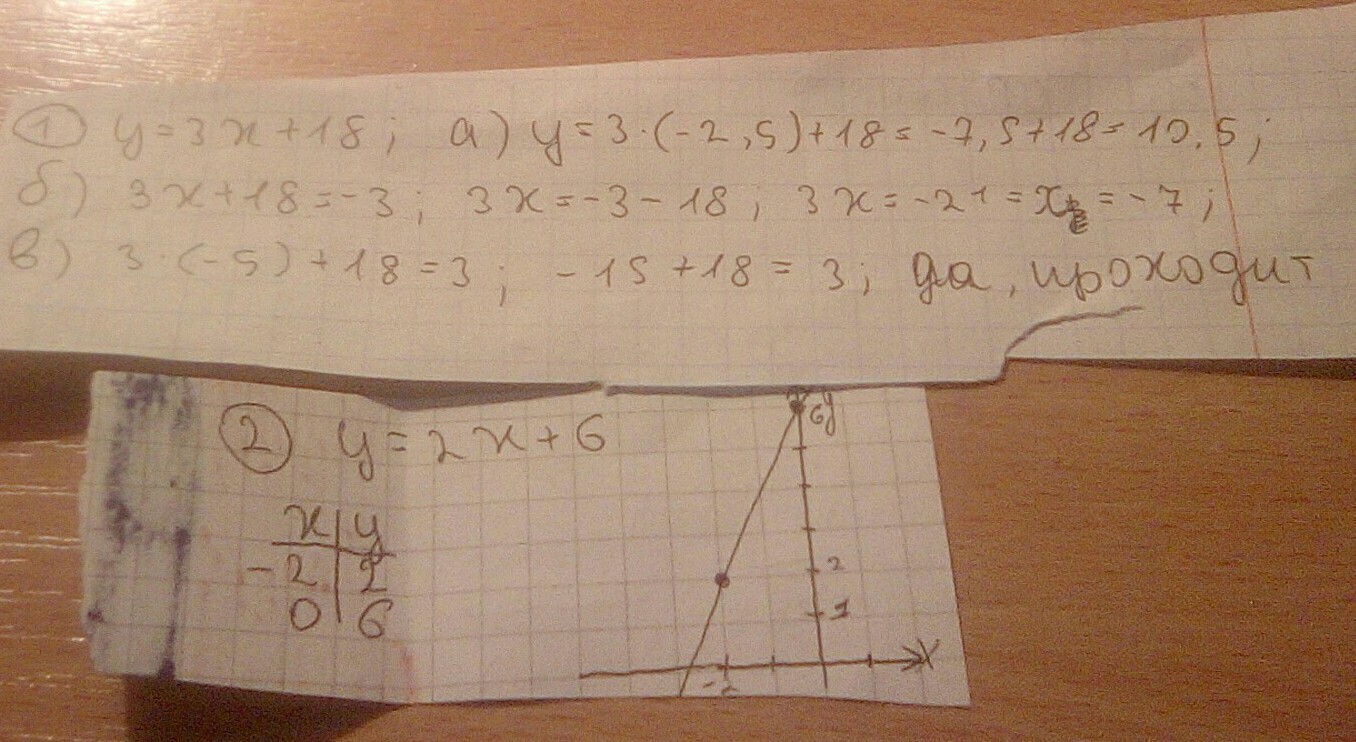 ① y = 3x + 18; а) y = 3·(-2,5) + 18 = -7,5 + 18 = 10,5;
б) 3x + 18 = -3; 3x = -3 - 18; 3x = -21 = x = -7;
в) 3·(-5) + 18 = 3; -15 + 18 = 3; да, проходит
② y = 2x + 6
x | y
-2 | 2
0 | 6
6 y
2
1
-2 x